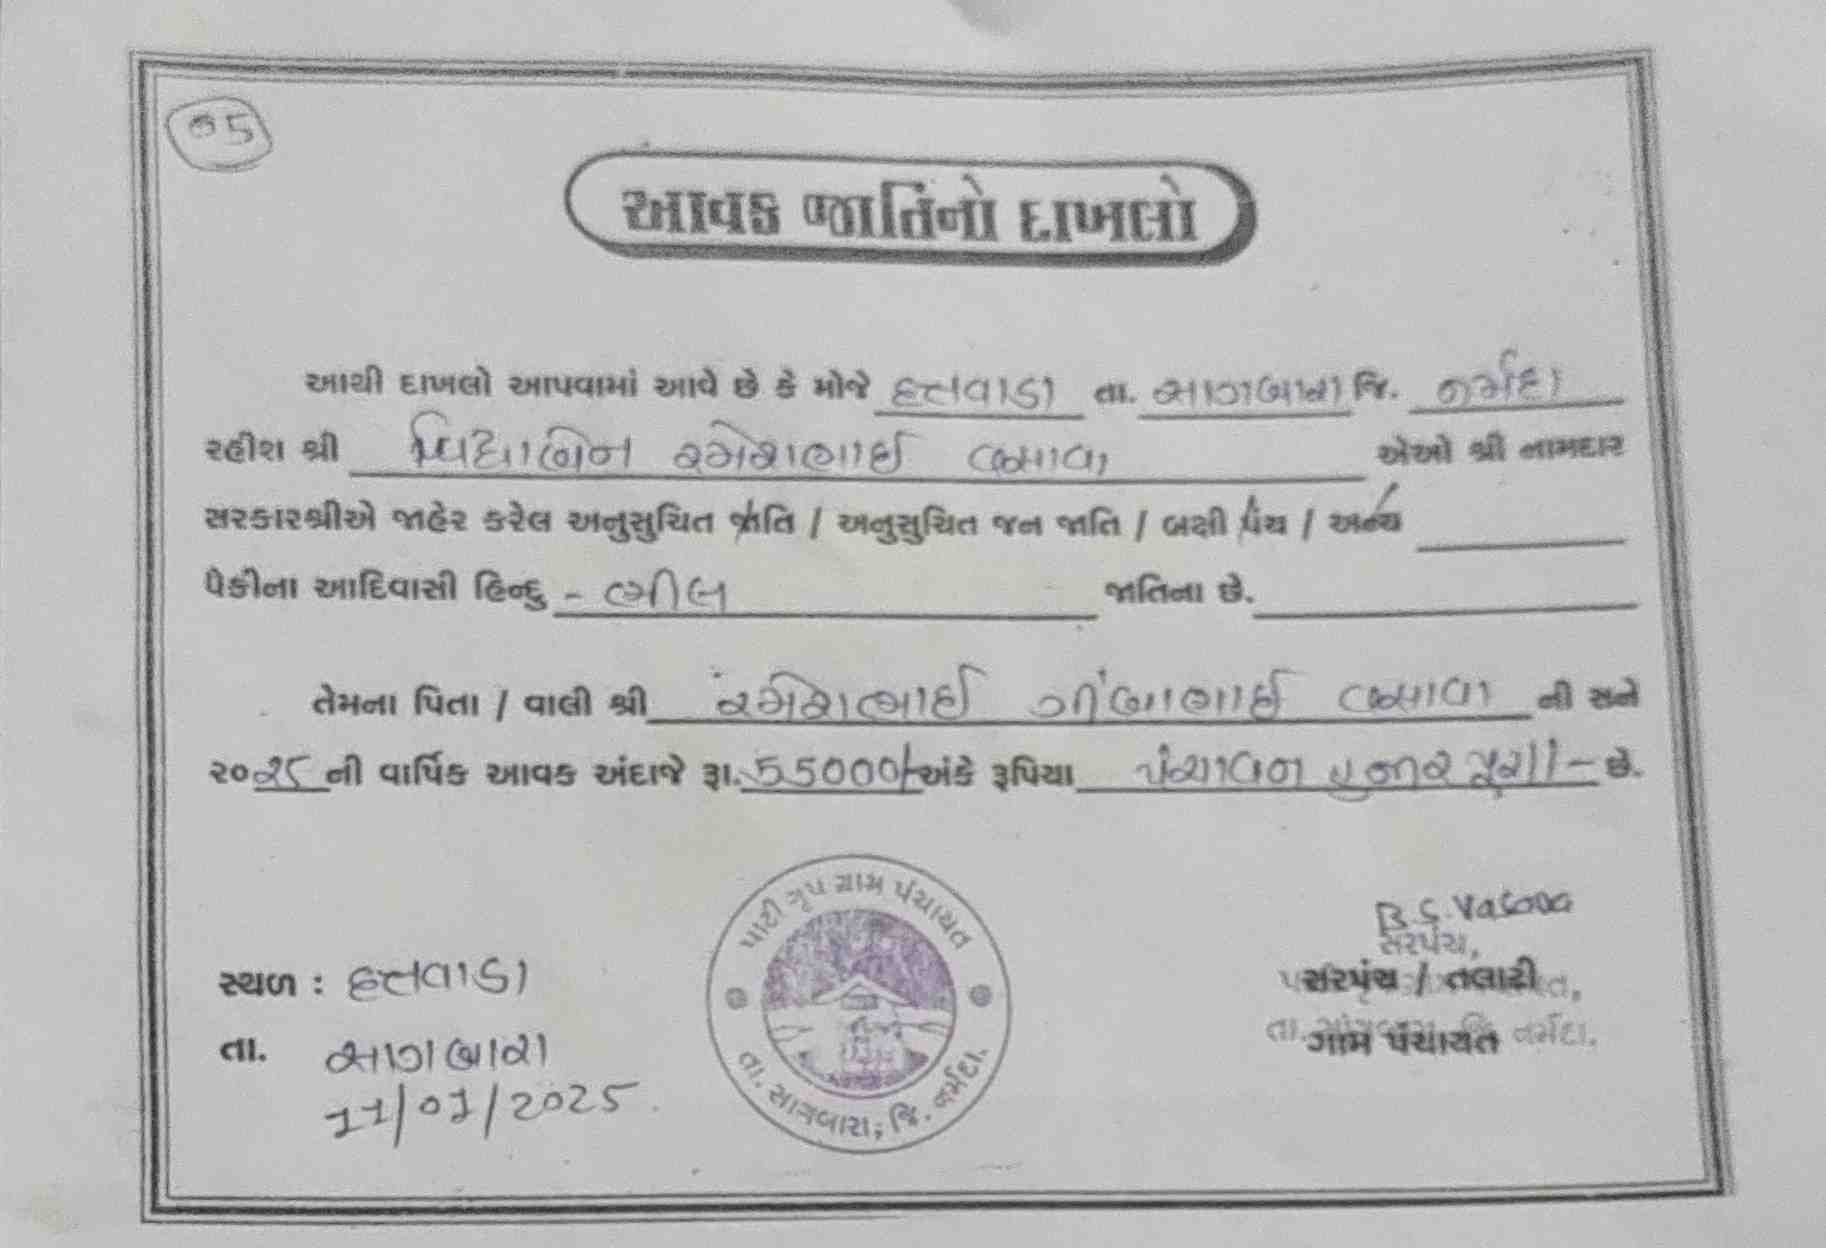 05
આવક જાતિનો દાખલો
આથી દાખલો આપવામાં આવે છે કે મોજે હતવાડા તા. સાગબારા જિ. નર્મદા
રહીશ શ્રી વિદ્યાબેન રમેશભાઈ વસાવા એઓ શ્રી નામદાર
સરકારશ્રીએ જાહેર કરેલ અનુસુચિત જાતિ / અનુસુચિત જન જાતિ / બક્ષી પંચ / અન્ય
પૈકીના આદિવાસી હિન્દુ - ભીલ જાતિના છે.
તેમના પિતા / વાલી શ્રી રમેશભાઈ વસાવા ની સને
૨૦૨૫ ની વાર્ષિક આવક અંદાજે રૂા. 55000/- અંકે રૂપિયા પંચાવન હજાર પુરા/- છે.
પાટી ગૃપ ગ્રામ પંચાયત
તા. સાગબારા, જિ. નર્મદા.
B.S. Vasava
સરપંચ,
સરપંચ / તલાટી
ગામ પંચાયત
તા. સાગબારા, જિ. નર્મદા.
સ્થળ : હતવાડા
તા. સાગબારા
11/01/2025